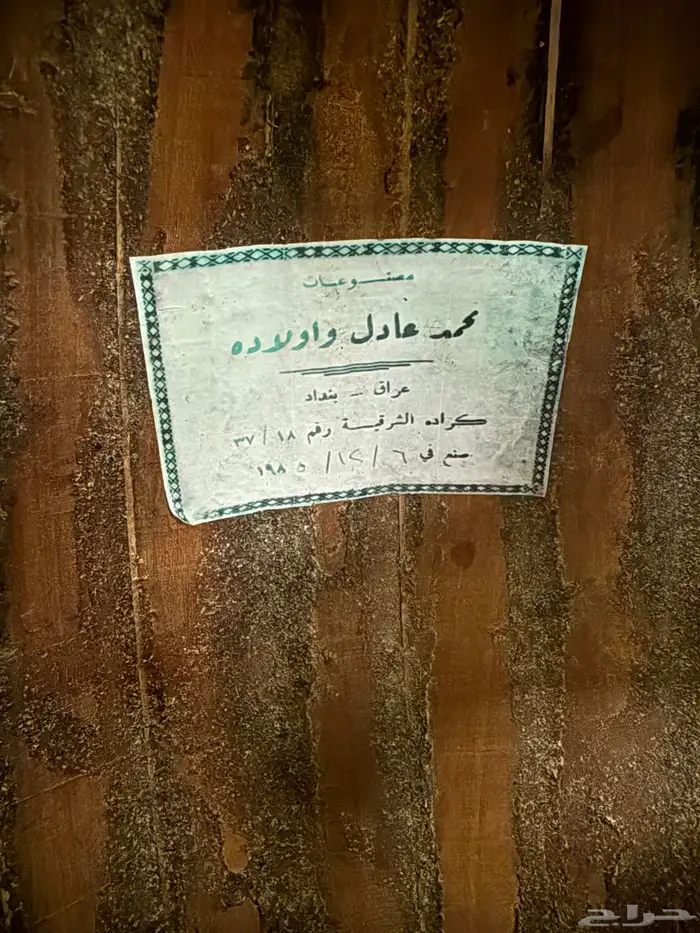 مصنوعات
محمد عادل واولاده
عراق - بغداد
كراده الشرقية رقم ١٨ / ٣٧
صنع في ٦ / ١٢ / ١٩٨٥
حراج